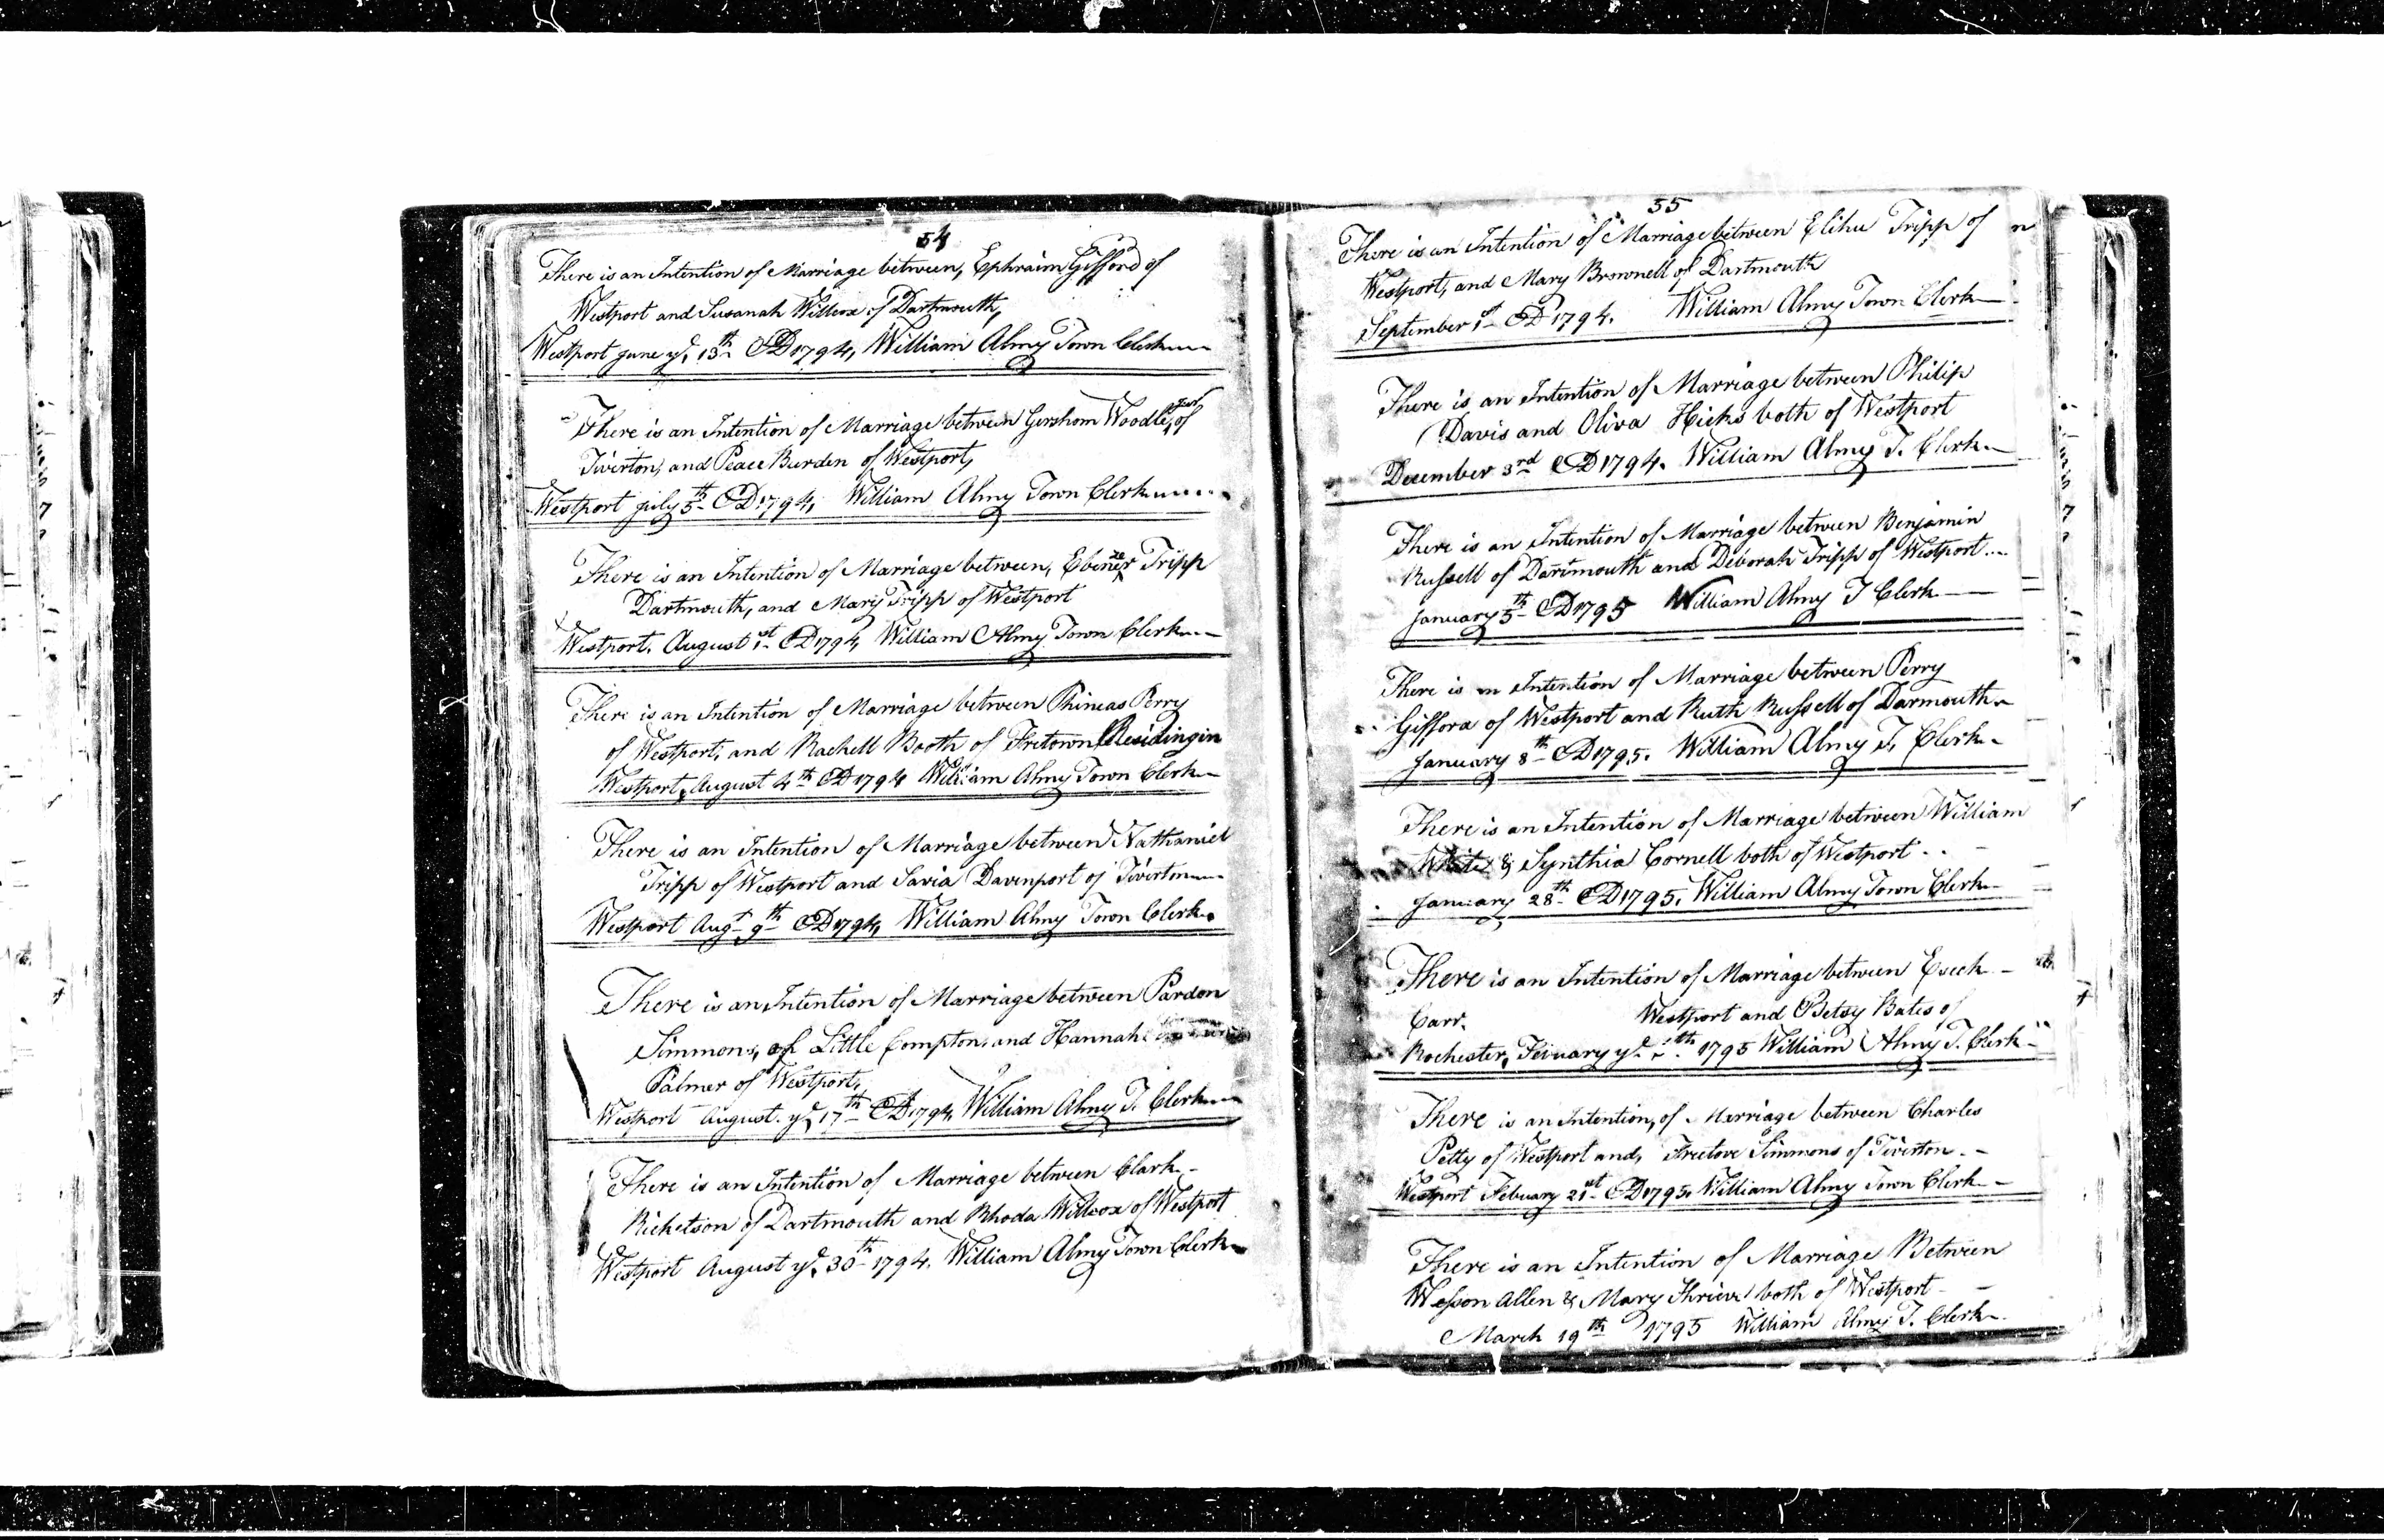 54
There is an Intention of Marriage between, Ephraim Gifford of
Westport and Susanah Willcox of Dartmouth,
Westport June ye. 13th AD 1794, William Almy Town Clerk
There is an Intention of Marriage between Gershom Woodle, Junr of
Tiverton, and Peace Burden of Westport,
Westport July 5th AD 1794, William Almy Town Clerk
There is an Intention of Marriage between, Ebenezer Tripp
Dartmouth, and Mary Tripp of Westport
Westport. August 1st AD 1794, William Almy Town Clerk
There is an Intention of Marriage between Phineas Perry
of Westport, and Rachell Booth of Fretown Residing in
Westport, August 4th AD 1794 William Almy Town Clerk
There is an Intention of Marriage between Nathaniel
Tripp of Westport and Savia Davenport of Tiverton
Westport Augt 9th AD 1794, William Almy Town Clerk
There is an Intention of Marriage between Pardon
Simmons, of Little Compton, and Hannah
Palmer of Westport,
Westport August. ye 17th AD 1794, William Almy T. Clerk
There is an Intention of Marriage between Clark
Ricketson of Dartmouth and Rhoda Willcox of Westport
Westport August ye. 30th 1794. William Almy Town Clerk
55
There is an Intention of Marriage between Elihu Tripp of
Westport, and Mary Brownell of Dartmouth
September 1st AD 1794. William Almy Town Clerk
There is an Intention of Marriage between Philip
Davis and Oliva Hicks both of Westport
December 3rd AD 1794. William Almy T. Clerk
There is an Intention of Marriage between Benjamin
Russell of Dartmouth and Deborah Tripp of Westport
January 5th AD 1795 William Almy T Clerk
There is an Intention of Marriage between Perry
Gifford of Westport and Ruth Russell of Darmouth
January 8th AD 1795. William Almy T. Clerk
There is an Intention of Marriage between William
White & Synthia Cornell both of Westport
January 28th AD 1795. William Almy Town Clerk
There is an Intention of Marriage between Eseck
Carr. Westport and Betsy Bates of
Rochester, Febuary ye 1795 William Almy T. Clerk
There is an Intention, of Marriage between Charles
Petty of Westport and, Freelove Simmons of Tiverton
Westport Febuary 21st AD 1795. William Almy Town Clerk
There is an Intention of Marriage Between
Wesson Allen & Mary Shrieve both of Westport
March 19th 1795 William Almy T. Clerk